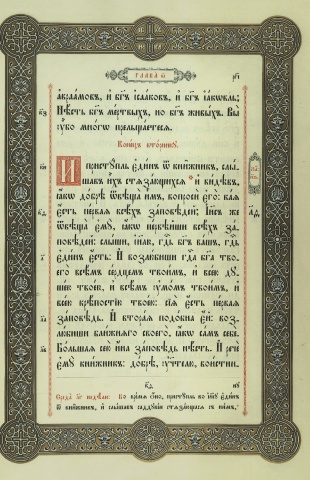 ГЛАВА В҃І
авраамовъ, и бг҃ъ ісааковъ, и бг҃ъ іакѡвль;
кз
Нѣсть бг҃ъ мертвыхъ, но бг҃ъ живыхъ. Вы
ᲂу҆бо многѡ прельщаетеся.
Конецъ вторникꙋ
ки
И пристꙋпль є҆динъ ѿ книжникъ, слы-
шавъ ихъ стязающихся и видѣвъ,
іакѡ добрѣ ѿвѣща имъ, вопроси є҆го: ка-
кд
ѧ є҆сть первая всѣхъ заповѣдій; Іи҃съ же
ѿвѣща є҆мꙋ, іакѡ первѣйши всѣхъ за-
повѣдій: слыши, іи҃лю, гд҇ь бг҃ъ вашъ, гд҇ь
л
є҆динъ є҆сть: И возлюбиши гд҇а бг҃а тво-
его всѣмъ сердцемъ твоимъ, и всею дꙋ-
шею твоею, и всѣмъ ᲂу҆момъ твоимъ, и
всею крѣпостію твоею: сія є҆сть первая
ла
заповѣдь. И вторая подобна є҆й: воз-
любиши ближняго своего, іакѡ самъ себе.
лв
Большая сею ина заповѣдь нѣсть. И рече
є҆мꙋ книжникъ: добрѣ, ᲂу҆чт҃лю, воистин-
Во время ѻно, пристꙋпль ко іи҃сꙋ є҆динъ
ѿ книжникъ, и слышавъ саддꙋкеи стязающася съ нимъ,